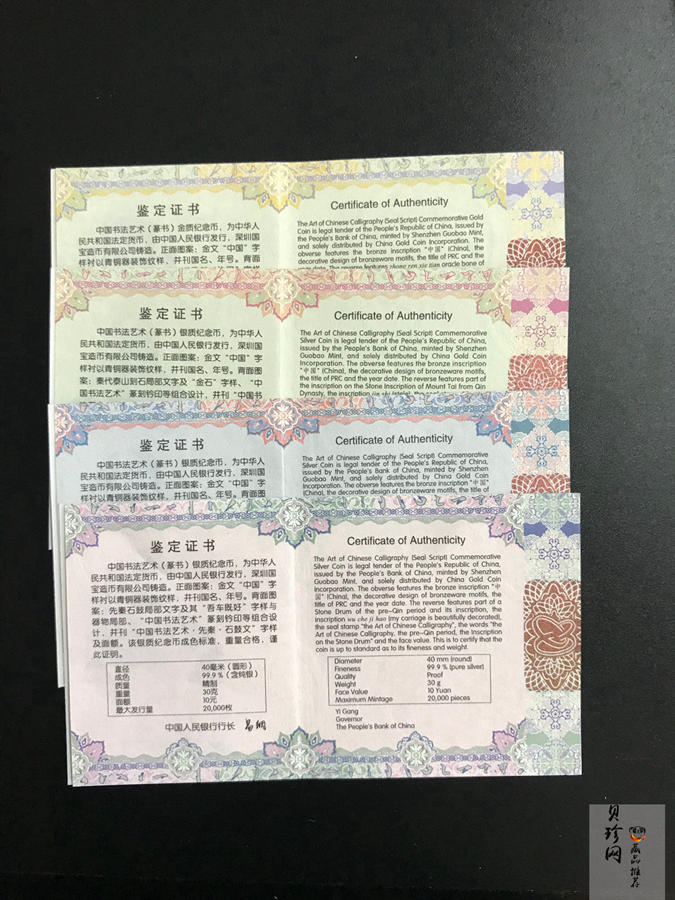 鉴定证书
中国书法艺术（篆书）金质纪念币，为中华人
民共和国法定货币，由中国人民银行发行，深圳国
宝造币有限公司铸造。正面图案：金文“中国”字
样衬以青铜器装饰纹样，并刊国名、年号。背面
Certificate of Authenticity
The Art of Chinese Calligraphy (Seal Script) Commemorative Gold
Coin is legal tender of the People's Republic of China, issued by
the People's Bank of China, minted by Shenzhen Guobao Mint,
and solely distributed by China Gold Coin Incorporation. The
obverse features the bronze inscription "中国" (China), the
decorative design of bronzeware motifs, the title of PRC and the
year date. The reverse features zheng ren xie tian oracle bone of
鉴定证书
中国书法艺术（篆书）银质纪念币，为中华人
民共和国法定货币，由中国人民银行发行，深圳国
宝造币有限公司铸造。正面图案：金文“中国”字
样衬以青铜器装饰纹样，并刊国名、年号。背面图
案：秦代泰山刻石局部文字及“金石”字样、“中
国书法艺术”篆刻钤印等组合设计，并刊“中国书
Certificate of Authenticity
The Art of Chinese Calligraphy (Seal Script) Commemorative
Silver Coin is legal tender of the People's Republic of China,
issued by the People's Bank of China, minted by Shenzhen
Guobao Mint, and solely distributed by China Gold Coin
Incorporation. The obverse features the bronze inscription
"中国" (China), the decorative design of bronzeware motifs, the
title of PRC and the year date. The reverse features part of
the inscription on the Stone Inscription of Mount Tai from Qin
Dynasty, the inscription
鉴定证书
中国书法艺术（篆书）银质纪念币，为中华人
民共和国法定货币，由中国人民银行发行，深圳国
宝造币有限公司铸造。正面图案：金文“中国”字
样衬以青铜器装饰纹样，并刊国名、年号。背面图
Certificate of Authenticity
The Art of Chinese Calligraphy (Seal Script) Commemorative
Silver Coin is legal tender of the People's Republic of China,
issued by the People's Bank of China, minted by Shenzhen
Guobao Mint, and solely distributed by China Gold Coin
Incorporation. The obverse features the bronze inscription "中国"
(China), the decorative design of bronzeware motifs, the title of
鉴定证书
中国书法艺术（篆书）银质纪念币，为中华人
民共和国法定货币，由中国人民银行发行，深圳国
宝造币有限公司铸造。正面图案：金文“中国”字
样衬以青铜器装饰纹样，并刊国名、年号。背面图
案：先秦石鼓局部文字及其“吾车既好”字样与
器物局部、“中国书法艺术”篆刻钤印等组合设
计，并刊“中国书法艺术·先秦·石鼓文”字样
及面额。该银质纪念币成色标准，重量合格，谨
此证明。
直径 40毫米（圆形）
成色 99.9％（含纯银）
质量 精制
重量 30克
面额 10元
最大发行量 20,000枚
中国人民银行行长 易纲
Certificate of Authenticity
The Art of Chinese Calligraphy (Seal Script) Commemorative
Silver Coin is legal tender of the People's Republic of China,
issued by the People's Bank of China, minted by Shenzhen
Guobao Mint, and solely distributed by China Gold Coin
Incorporation. The obverse features the bronze inscription "中
国" (China), the decorative design of bronzeware motifs, the
title of PRC and the year date. The reverse features part of a
Stone Drum of the pre-Qin period and its inscription, the
inscription wu che ji hao (my carriage is beautifully decorated),
the seal stamp "the Art of Chinese Calligraphy", the words "the
Art of Chinese Calligraphy, the pre-Qin period, the Inscription
on the Stone Drum" and the face value. This is to certify that the
coin is up to standard as to its fineness and weight.
Diameter 40 mm (round)
Fineness 99.9 % (pure silver)
Quality Proof
Weight 30 g
Face Value 10 Yuan
Maximum Mintage 20,000 pieces
Yi Gang
Governor
The People's Bank of China
贝珍网
藏品推荐